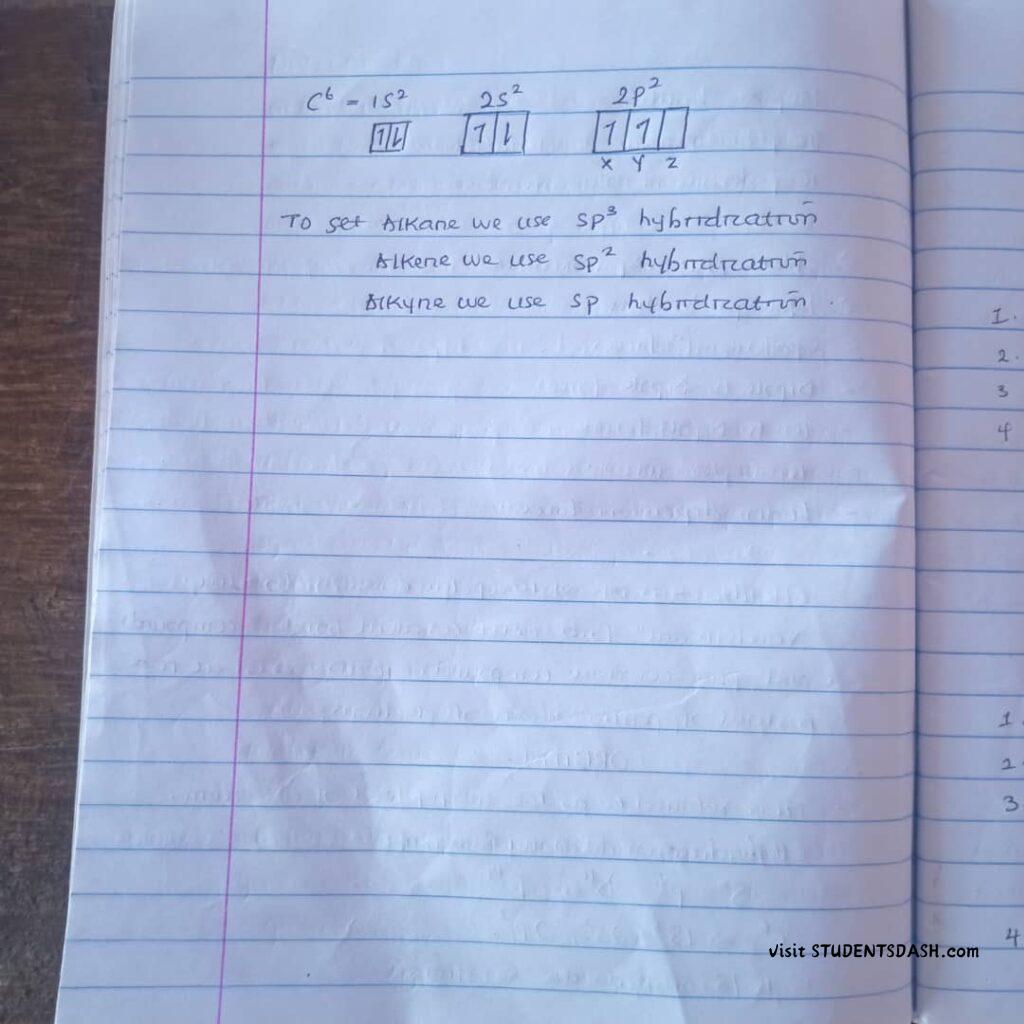 C⁶ = 1S² 2S² 2P²
1 1 1 1 1 1
X Y Z
To get Alkane we use SP³ hybridization
Alkene we use SP² hybridization
Alkyne we use SP hybridization .
1.
2.
3
4
1.
2.
3
4
visit STUDENTSDASH.com